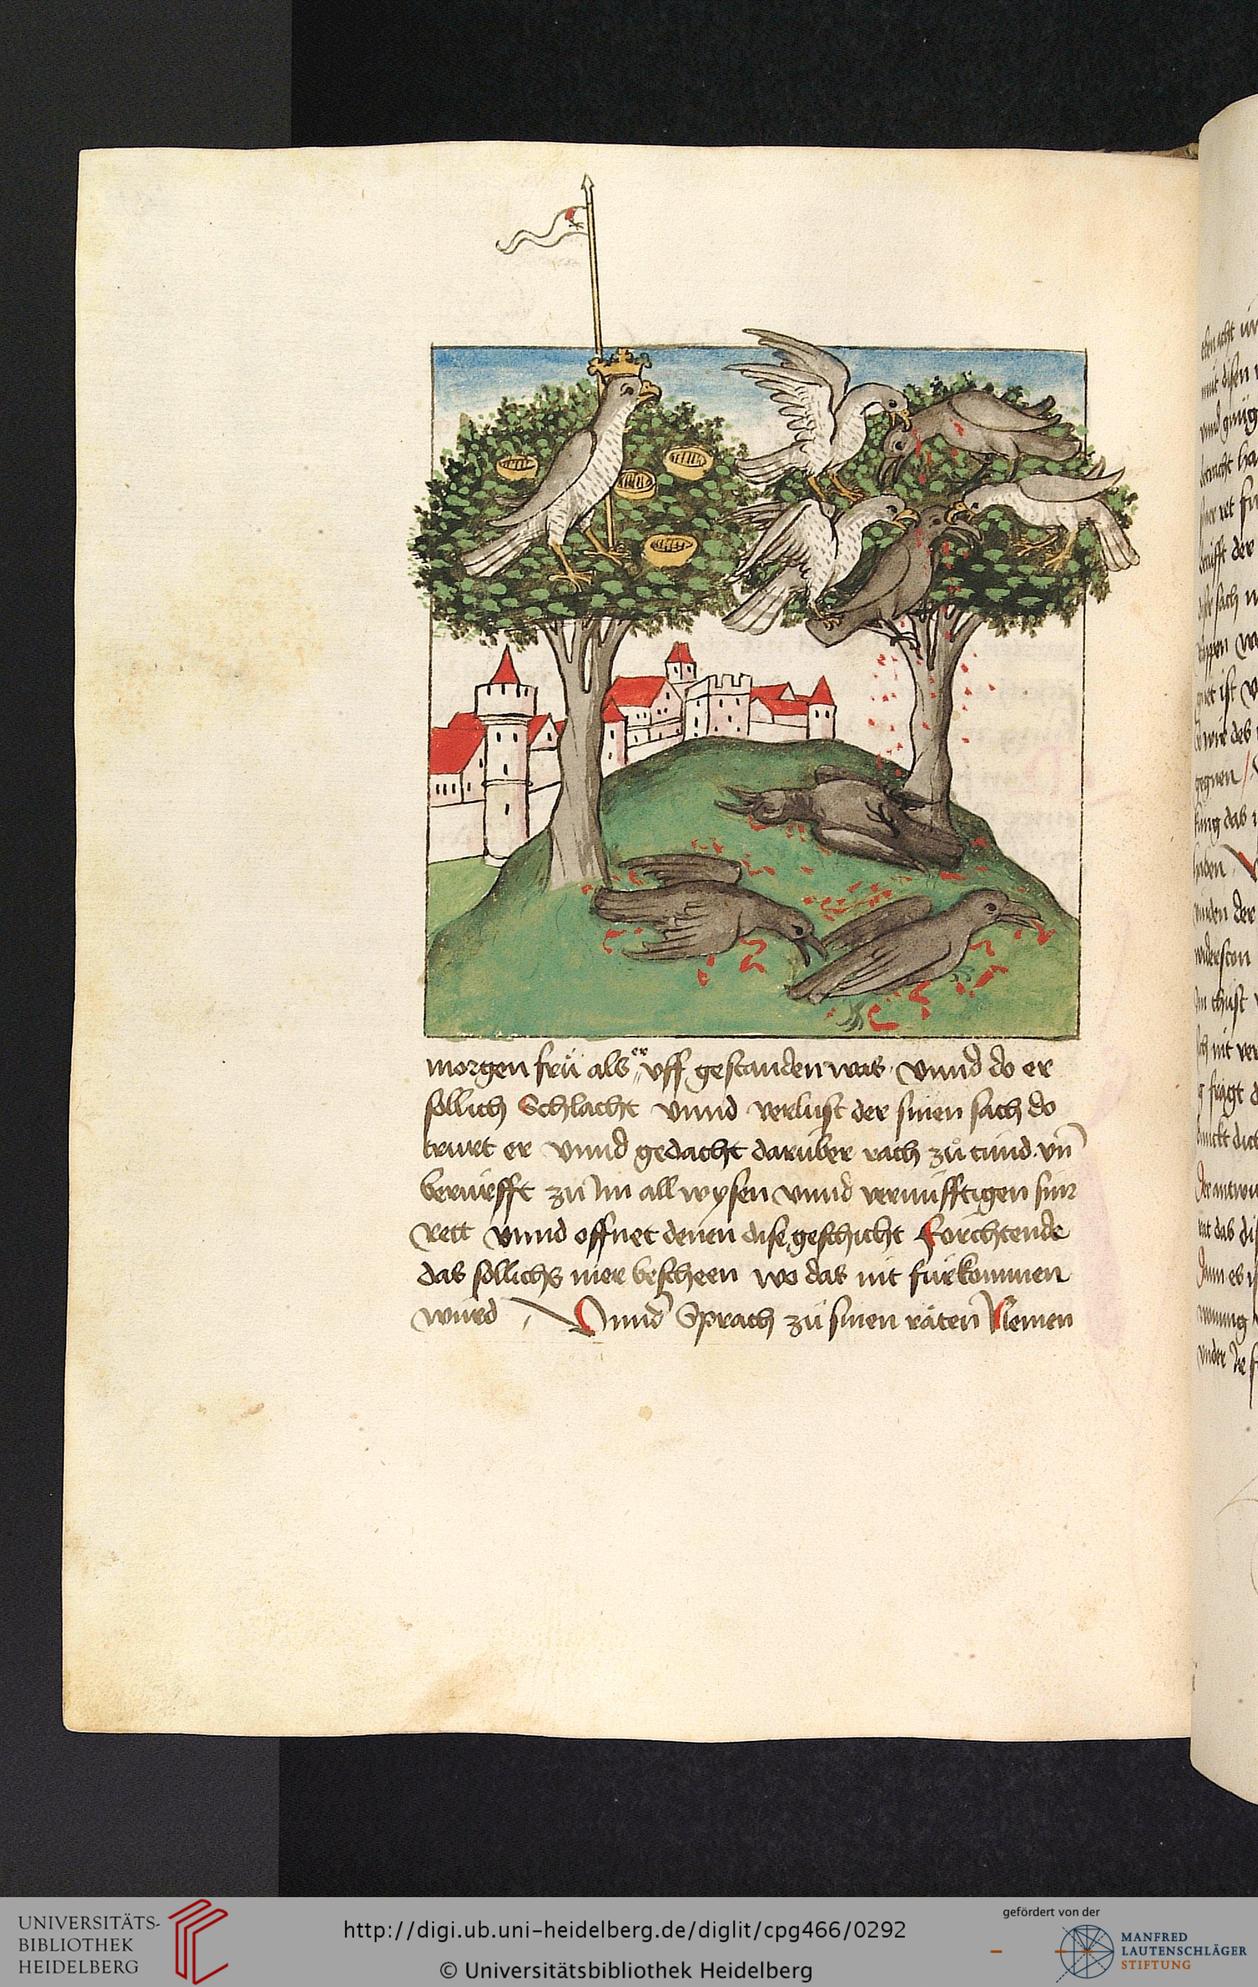 morgen frü als er vff gestanden was · vnnd do er
söllich Schlacht vnnd verlust der sinen sach do
trurt er vnnd gedacht darüber rach zů tůnd · vn̄
berůfft zů Im all wysen vnnd vernüfftigen siner
rett vnnd offnet denen dise geschicht Förchtende
das söllichs mer bescheen wo das nit fürkommen
würd / Vnnd Sprach zů sinen räten Nemen
UNIVERSITÄTS-
BIBLIOTHEK
HEIDELBERG
http://digi.ub.uni-heidelberg.de/diglit/cpg466/0292
© Universitätsbibliothek Heidelberg
gefördert von der
MANFRED
LAUTENSCHLÄGER
STIFTUNG